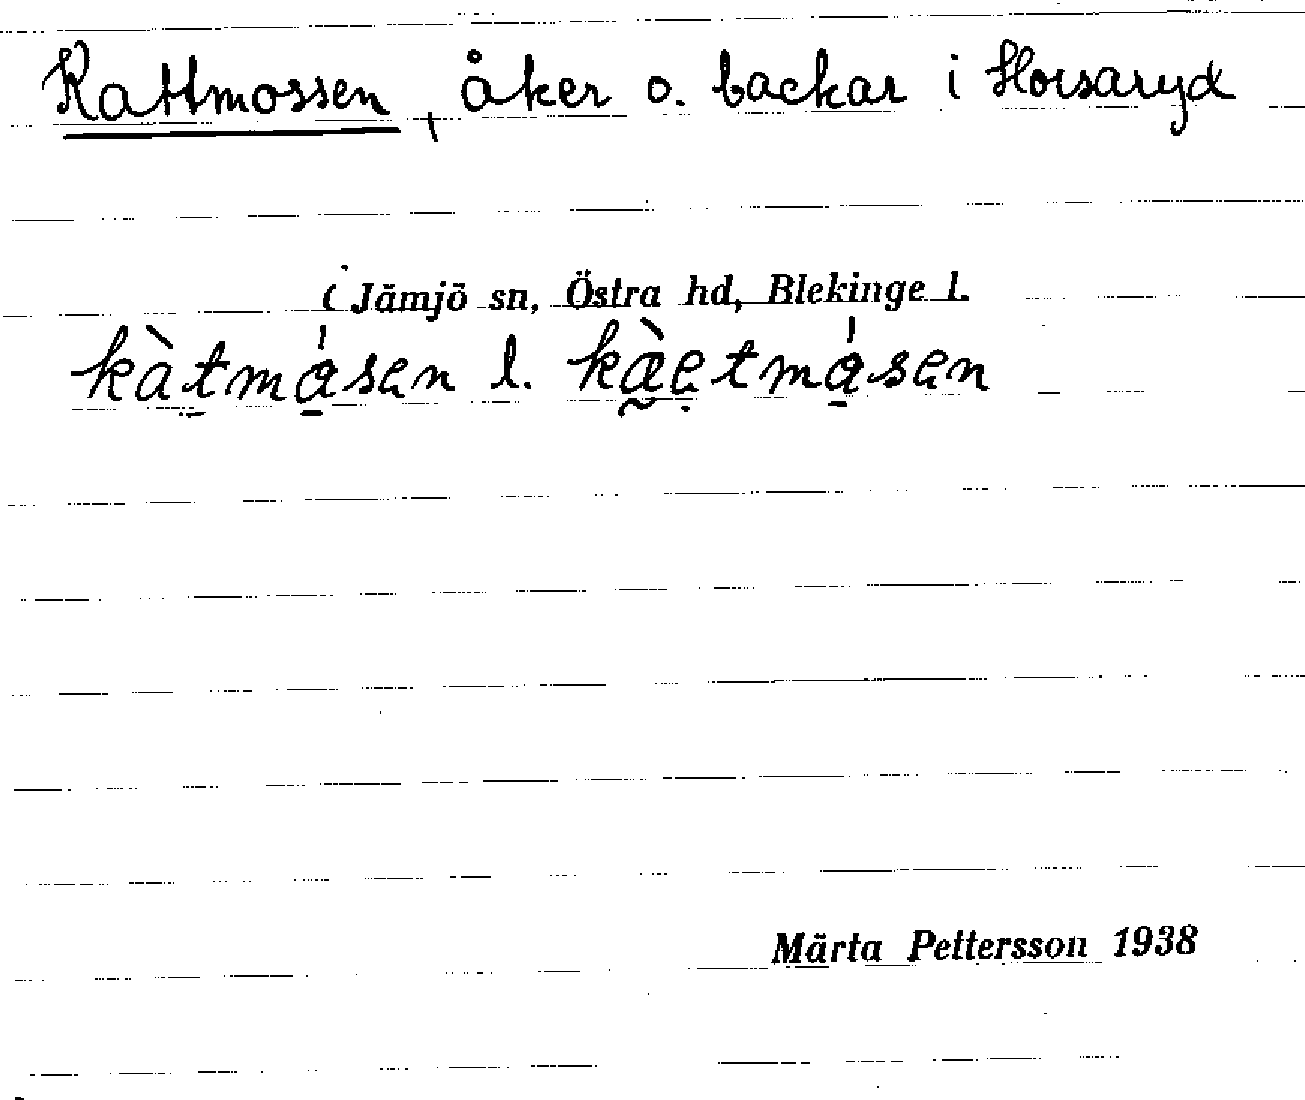 Kattmossen, åker o. backar i Horsaryd
i Jämjö sn, Östra hd, Blekinge l.
kàtmásen l. kæ̀etmásen
Märta Pettersson 1938